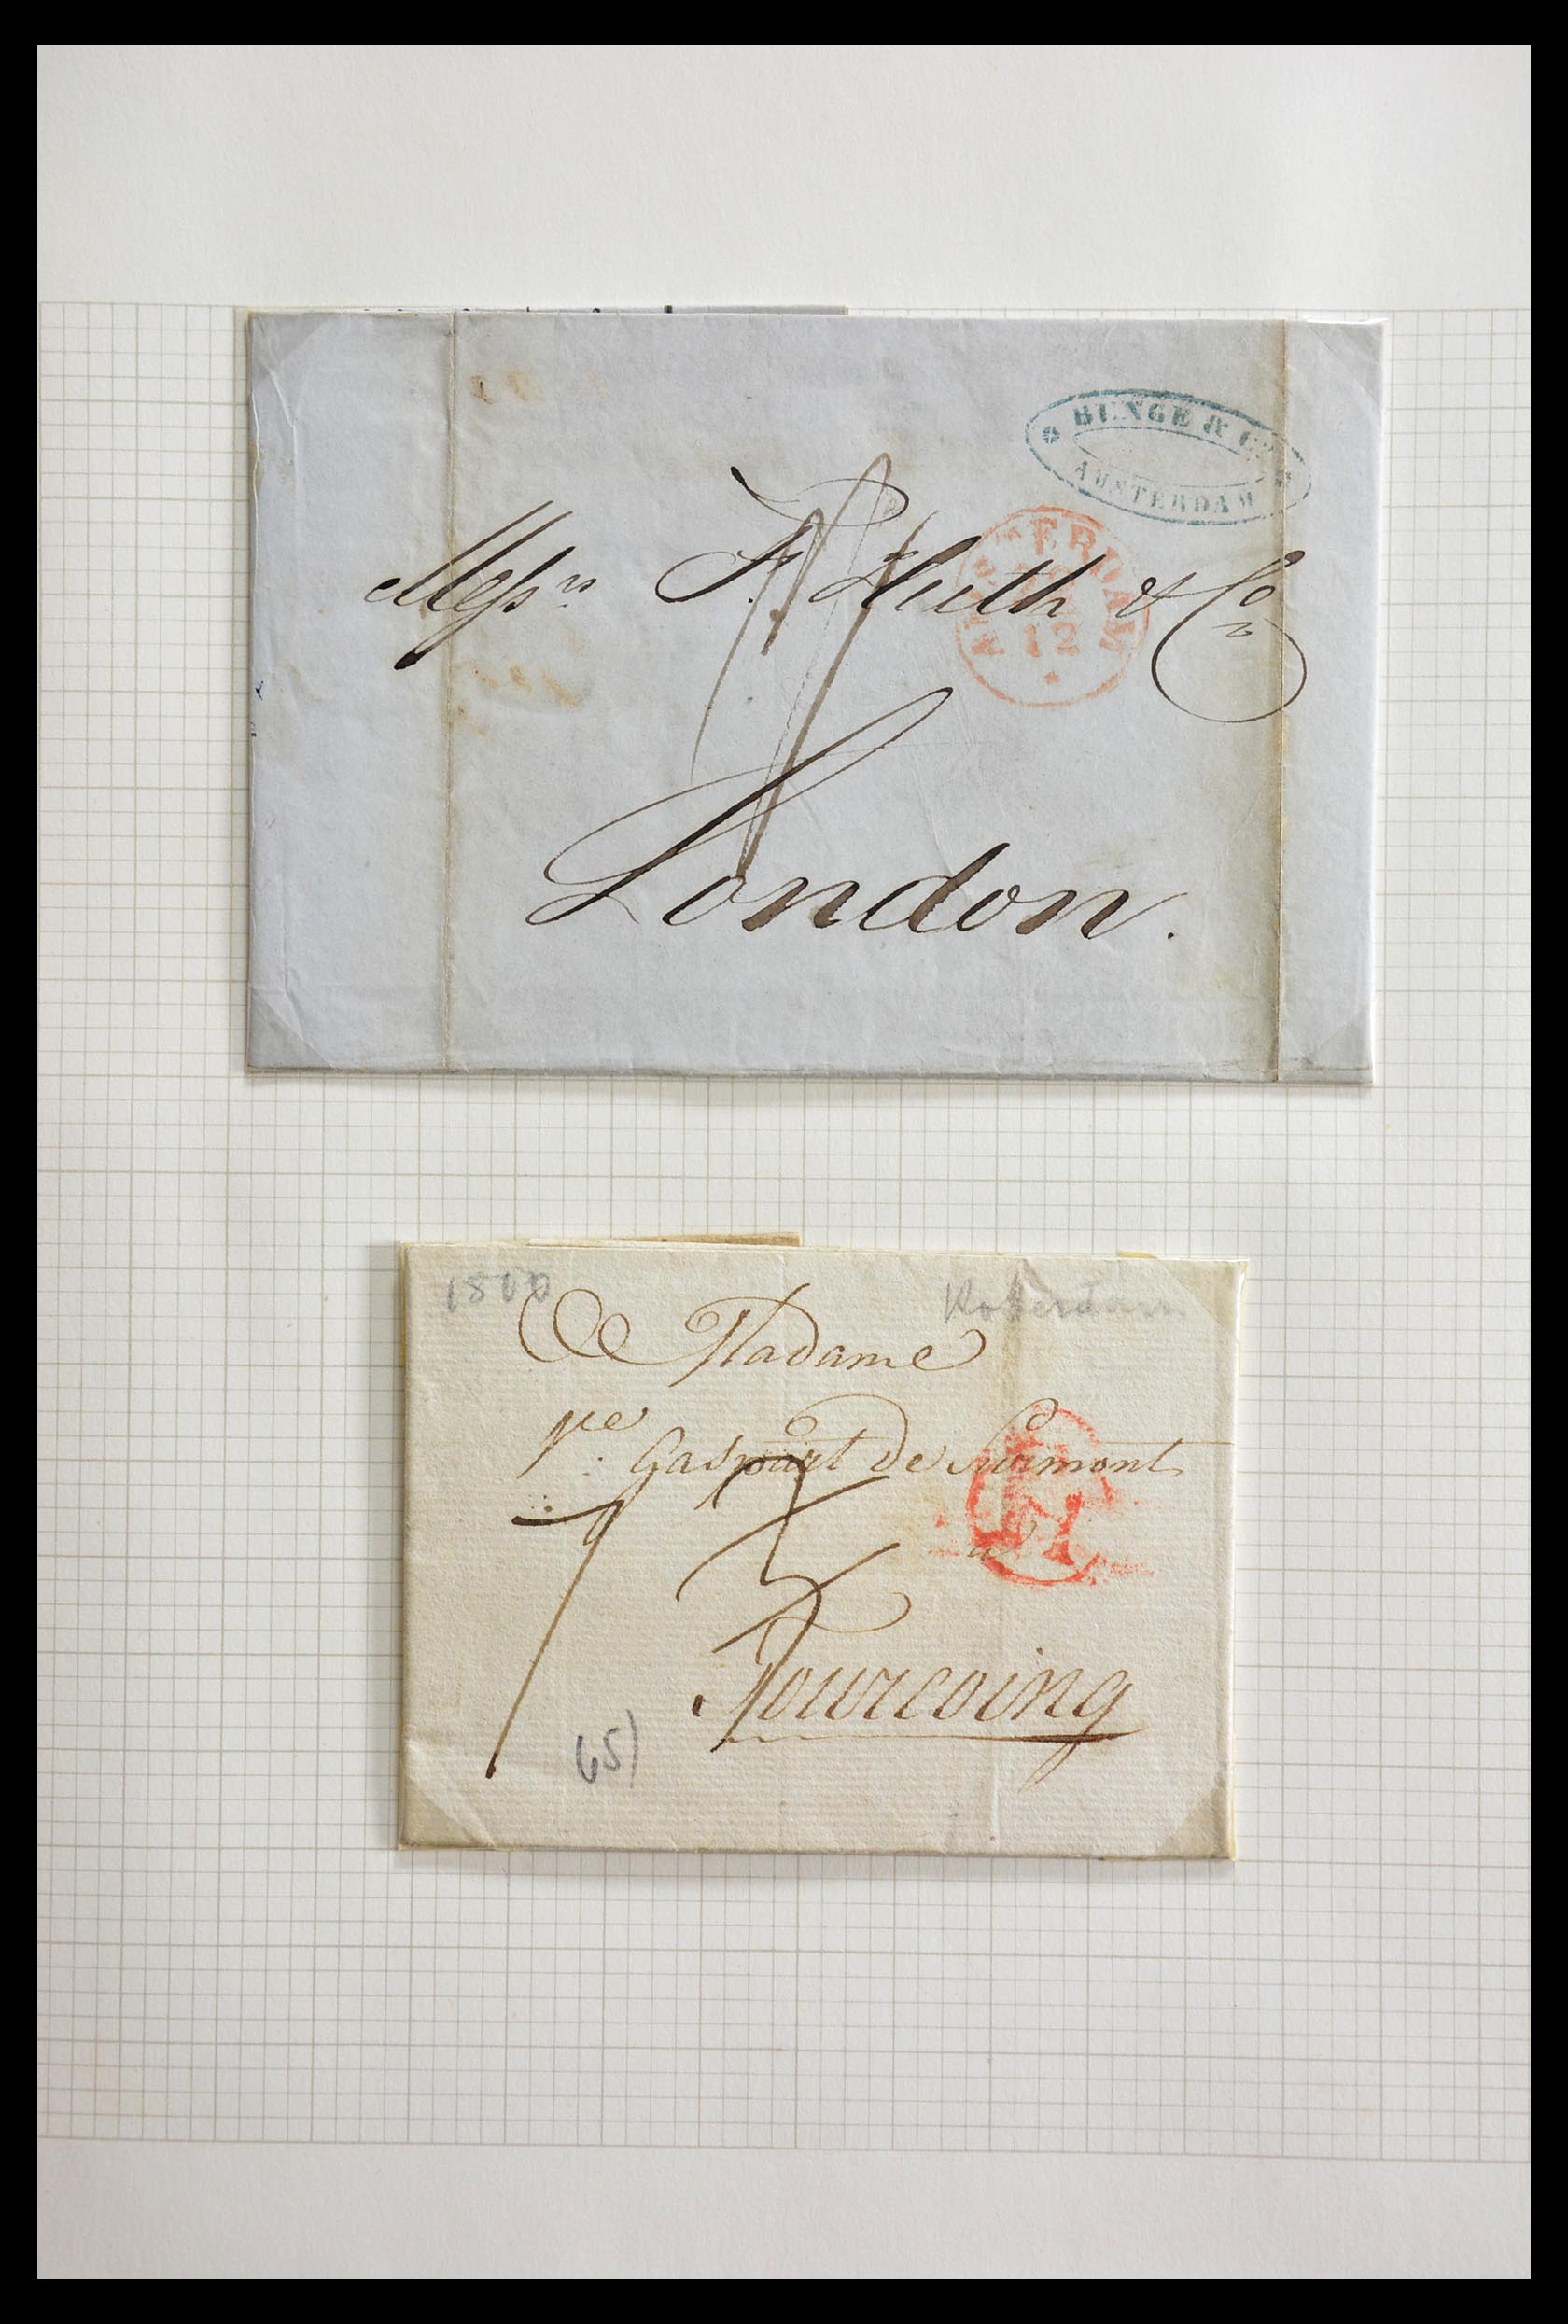 BUNGE & Co
AMSTERDAM
AMSTERDAM
12
Messrs F. Huth & Co
London.
1800
Rotterdam
A Madame
Ve: Gaspart de Surmont
à
Tourcoing
H
65)